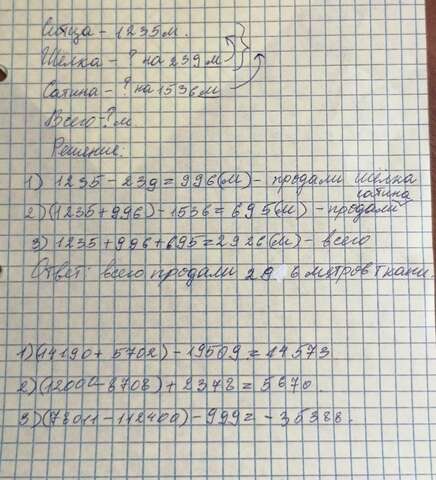 Ситца - 1235м.
Шёлка - ? на 239 м
Сатина - ? на 1536 м
Всего - ? м
Решение:
1) 1235 - 239 = 996(м) - продали шёлка
сатина
2) (1235+996) - 1536 = 695(м) - продали
3) 1235 + 996 + 695 = 2926(м) - всего
Ответ: всего продали 29 6 метров ткани.
1) (14190 + 5702) - 19509 = 14573
2) (12000 - 8708) + 2378 = 5670.
3) (78011 - 112400) - 999 = - 35388.